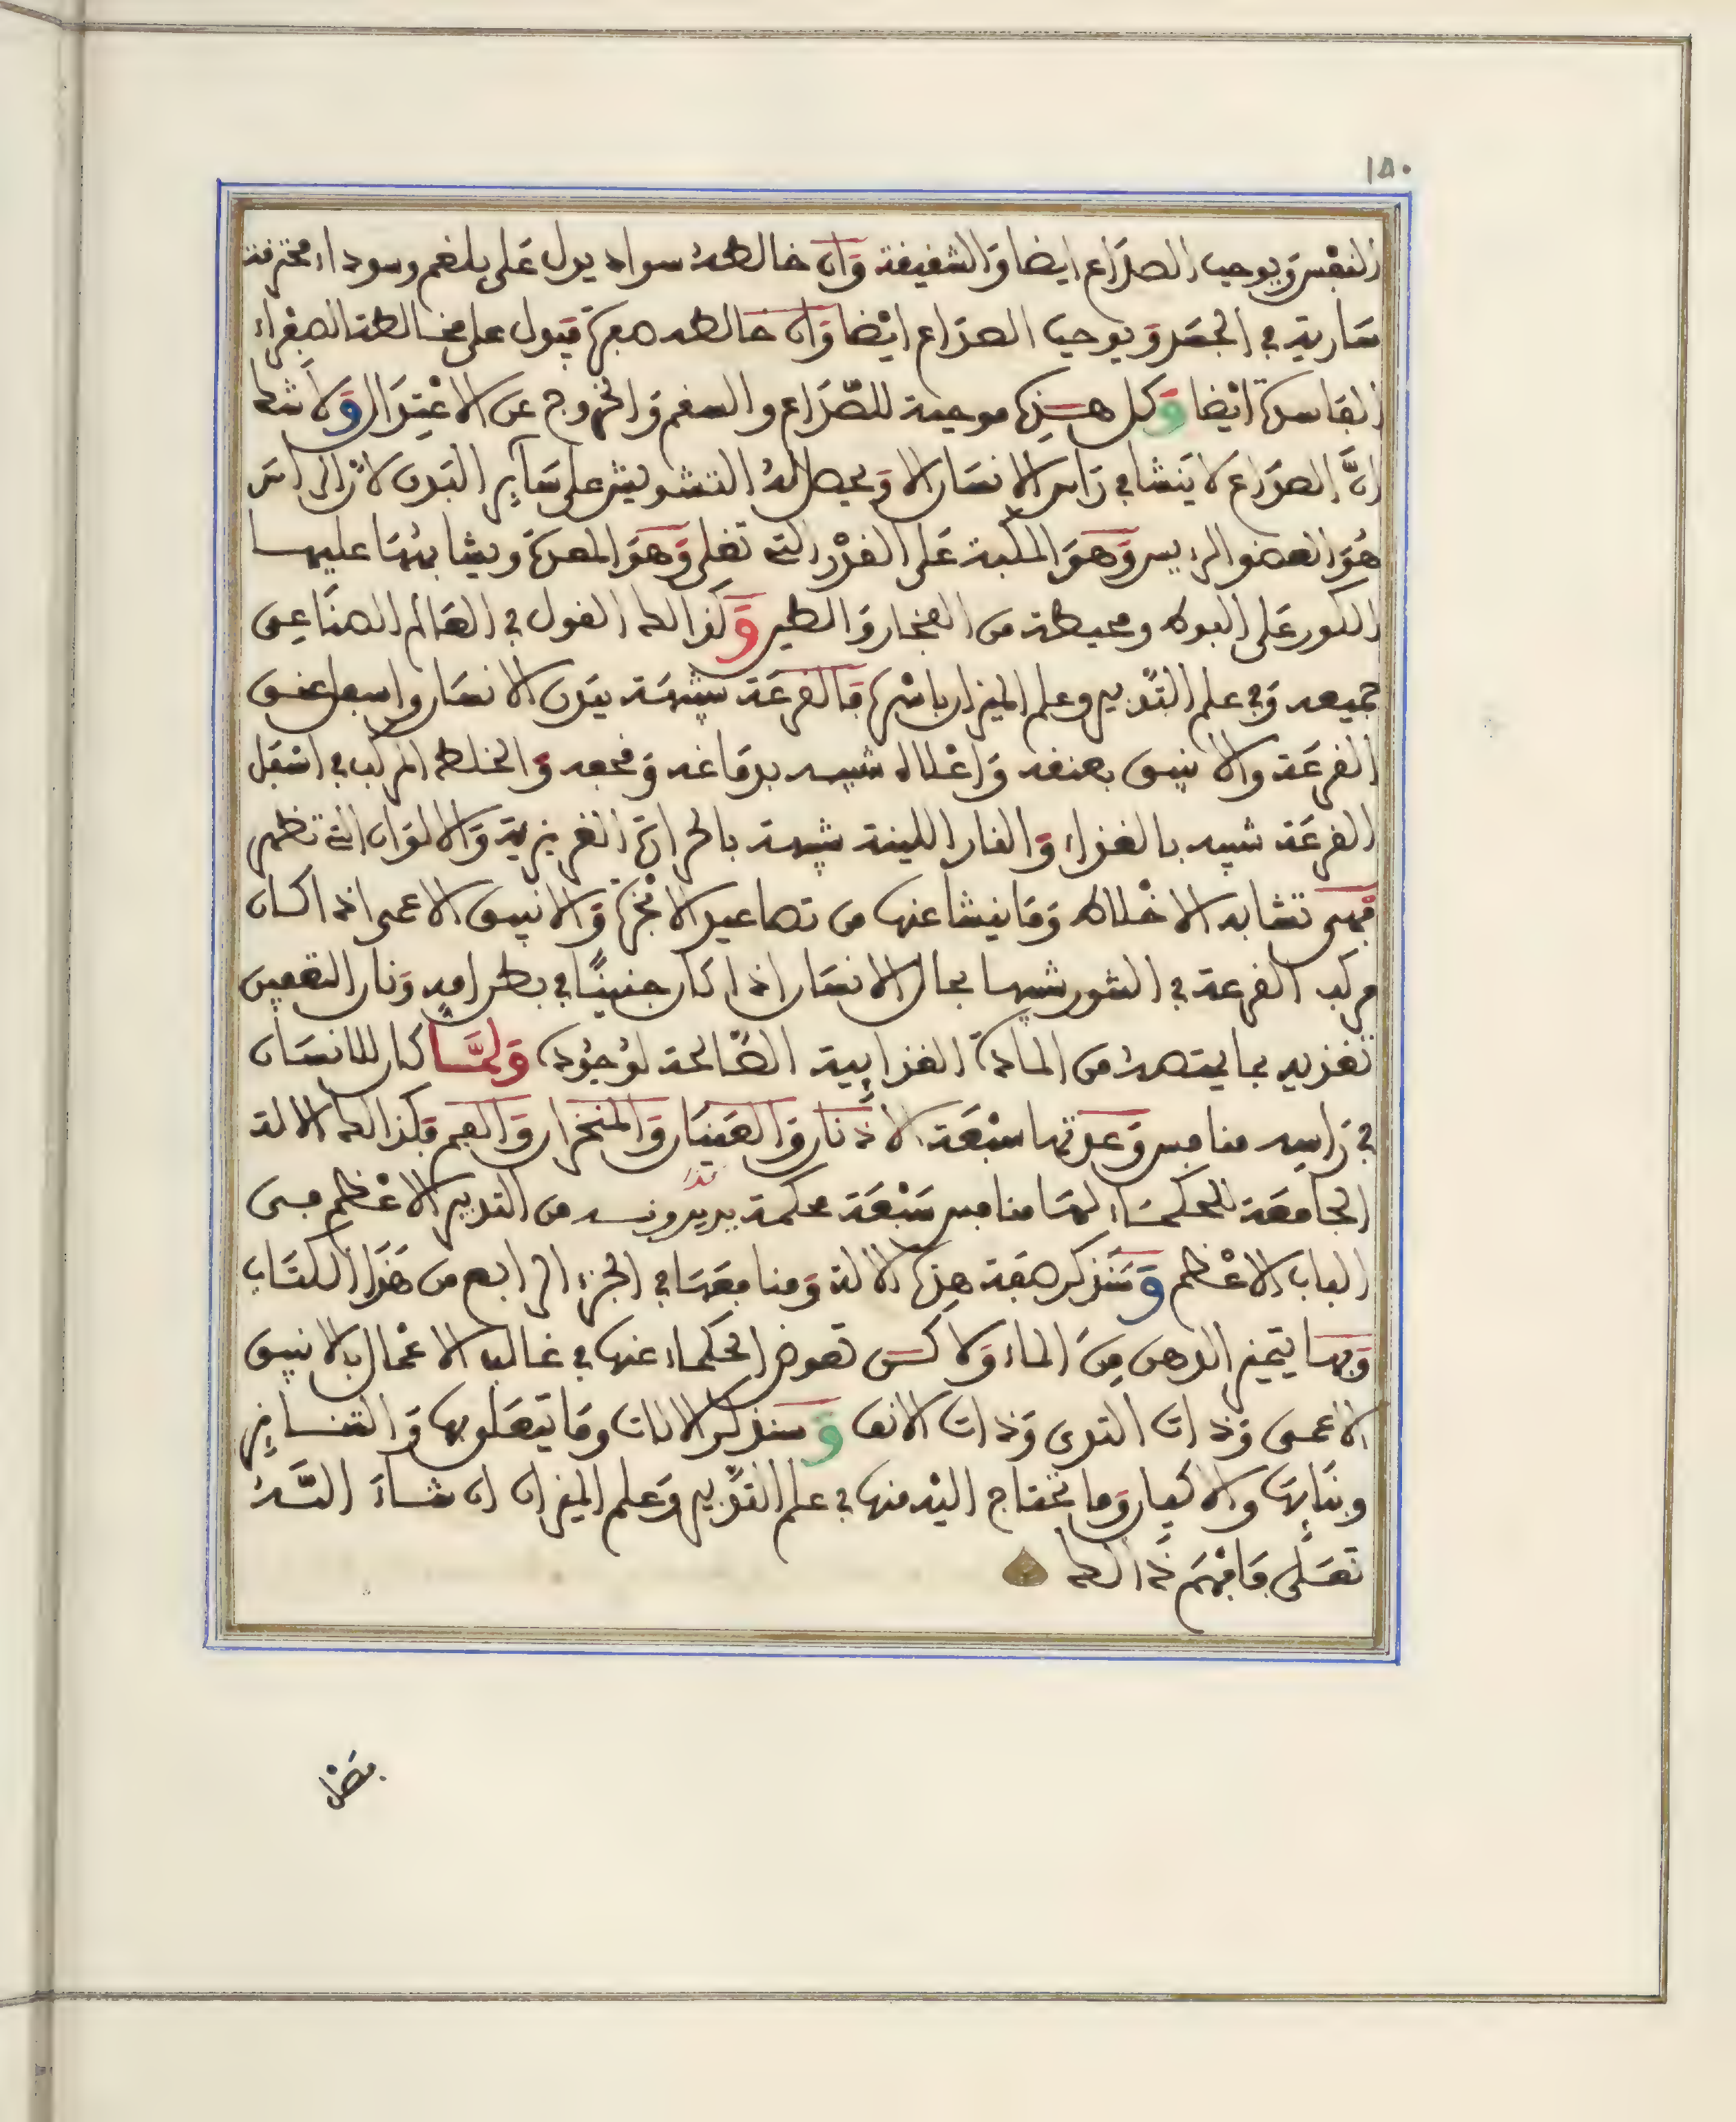 ١٥٠
النفس ويوجب الصداع ايضا والشقيقة وان خالطه سواد يدل على بلغم وسوداء محترقة
سارية في الجسد ويوجب الصداع ايضا وان خالطه صفرة فيدل على مخالطة الصفراء
الفاسدة ايضا وكل هذه موجبة للصداع والسقم والخروج عن الاعتدال ولا شك
ان الصداع لا ينشا في راس الانسان الا ويحصل له التشويش على ساير البدن لان الراس
هو العضو الرييس وهو المكبة على القدر التي تغلي وهو المعدة ويشابهها عليها
الكور على البوط ومحيطة من الفخار والطين وكذالك القول في العالم الصناعي
جميعه وفي علم التدبير وعلم الميزان باسره فالقرعة شبيهة ببدن الانسان واسفل عنق
القرعة والانبيق بعنقه واعلاه شبيه بدماغه وقحفه والخلط المركب في اسفل
القرعة شبيه بالغذاء والنار اللينة شبيهة بالحرارة الغريزية والالوان التي تظهر
فهي تشابه الاخلاط وما ينشا عنها من تصاعيد الابخرة والانبيق الاعمى اذا كان
مركب القرعة في التنور شبيها بحال الانسان اذا كان جنينا في بطن امه ونار التعفين
تغذيه بما يمتصه من المادة الغذايية الصالحة لوجوده ولما كان للانسان
في راسه منافس وعدتها سبعة الاذنان والعينان والمنخران والفم فكذالك الالة
الجامعة للحكماء لها منافس سبعة محكمة يديرونه من التدبير الاعظم فسي
الباب الاعظم وسنذكر صفة هذه الالة ومنافعها في الجزء الرابع من هذا الكتاب
وبها يتميز الدهن من الماء ولاكن تعوض الحكماء عنها في غالب الاعمال بالانبيق
الاعمى وذات الثدي وذات الانف وسنذكر الالات وما يتعلق بها والتنانير
وبنايها والاكيار وما نحتاج اليه منها في علم التدبير وعلم الميزان ان شاء الله
تعلى فافهم ذالك
فصل